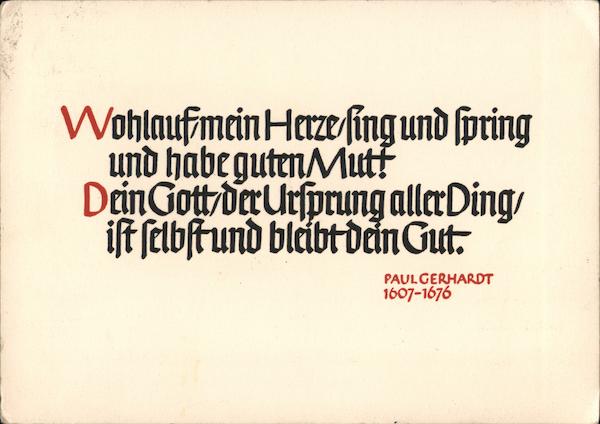 Wohlauf/mein Herze/sing und spring
und habe guten Mut!
Dein Gott/der Ursprung aller Ding/
ist selbst und bleibt dein Gut.
PAUL GERHARDT
1607-1676